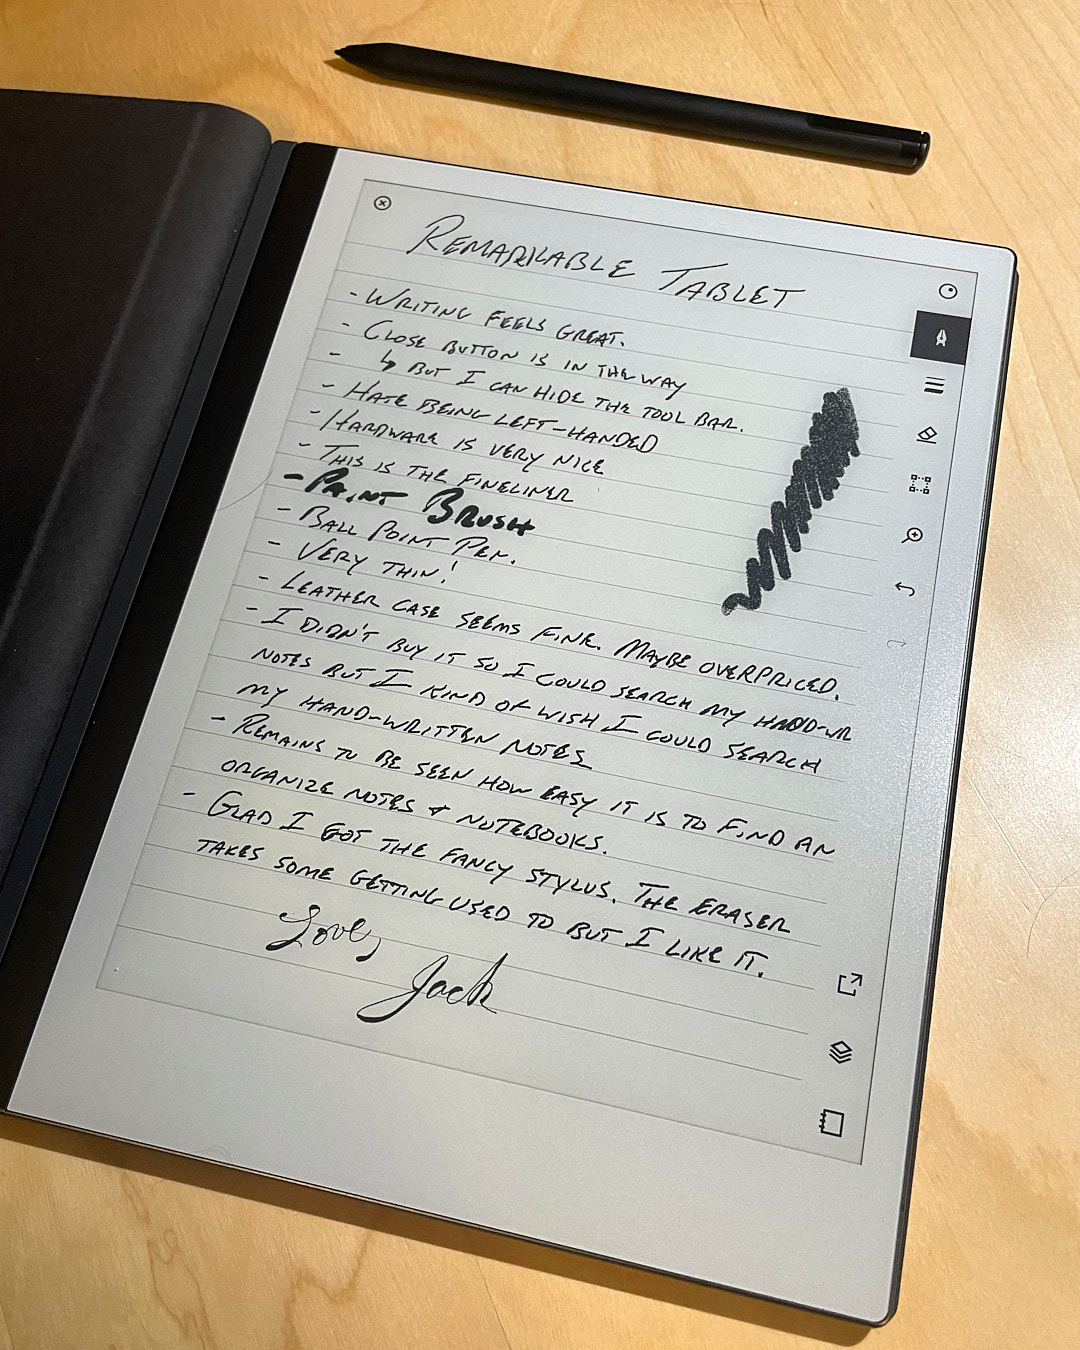 REMARKABLE TABLET
- WRITING FEELS GREAT.
- CLOSE BUTTON IS IN THE WAY
- ↳ BUT I CAN HIDE THE TOOL BAR.
- HATE BEING LEFT-HANDED
- HARDWARE IS VERY NICE
- THIS IS THE FINELINER
- PAINT BRUSH
- BALL POINT PEN.
- VERY THIN!
- LEATHER CASE SEEMS FINE. MAYBE OVERPRICED.
- I DIDN'T BUY IT SO I COULD SEARCH MY HAND-WR
NOTES BUT I KIND OF WISH I COULD SEARCH
MY HAND-WRITTEN NOTES
- REMAINS TO BE SEEN HOW EASY IT IS TO FIND AN
ORGANIZE NOTES & NOTEBOOKS.
- GLAD I GOT THE FANCY STYLUS. THE ERASER
TAKES SOME GETTING USED TO BUT I LIKE IT.
Love,
Jack